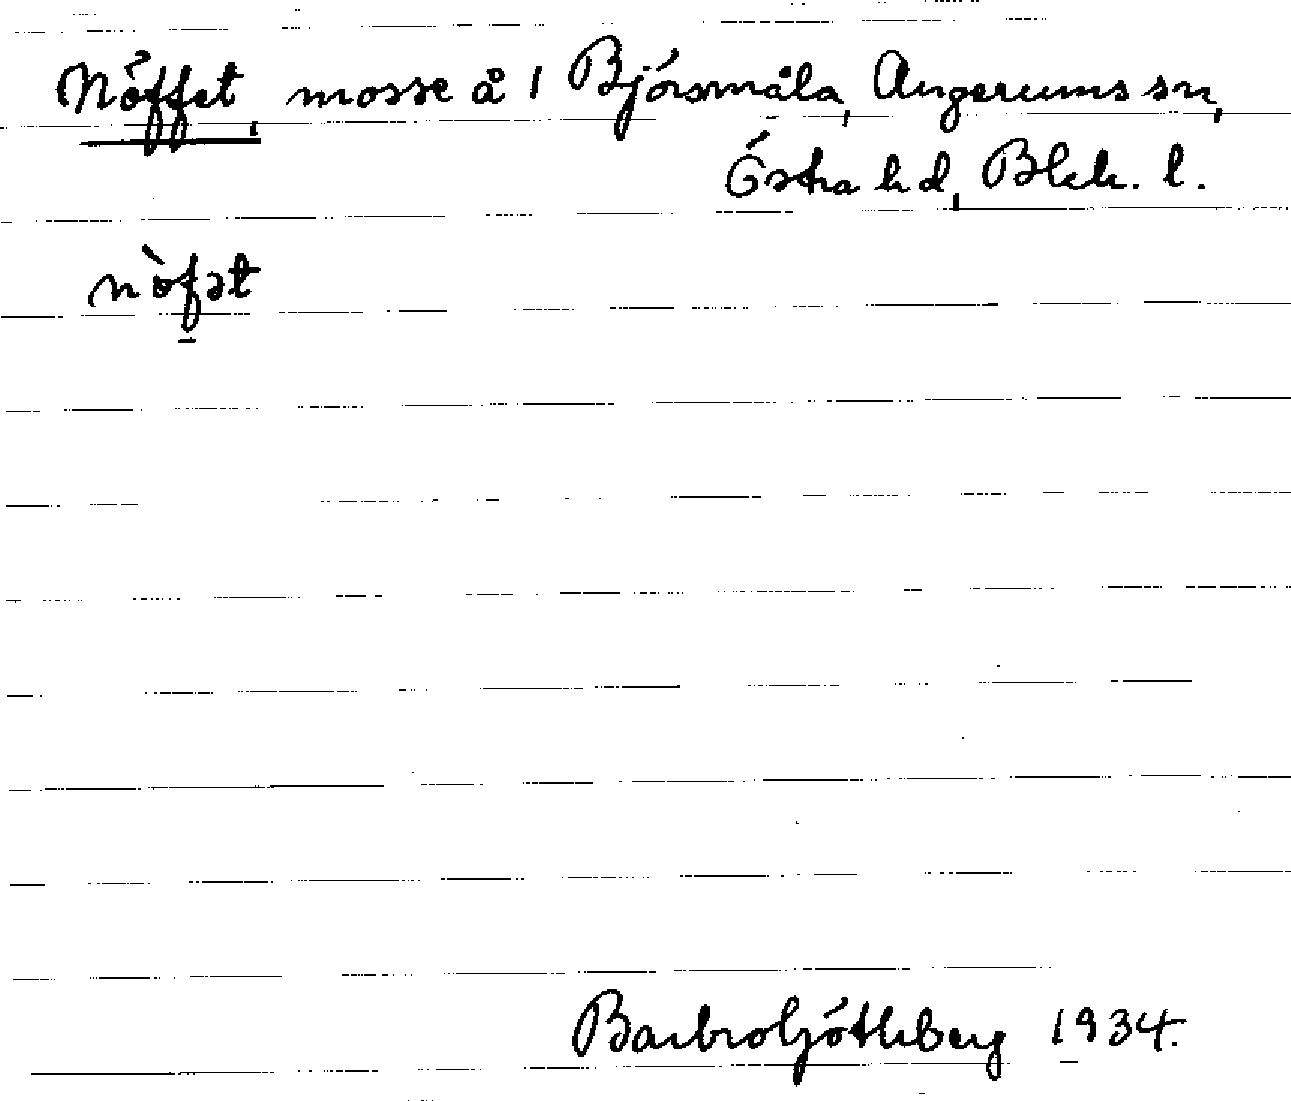 Nöffet, mosse å 1 Björsmåla, Augerums sn,
Östra hd, Blek. l.
nò̤fət
Barbro Götlaberg 1934.